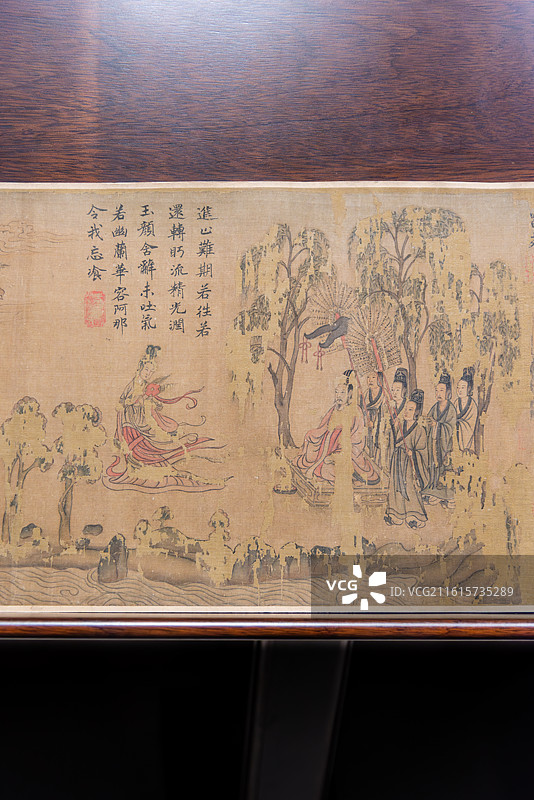 進止難期若往若
還轉眄流精光潤
玉顏含辭未吐氣
若幽蘭華容阿那
令我忘飡
VCG
ID: VCG211615735289